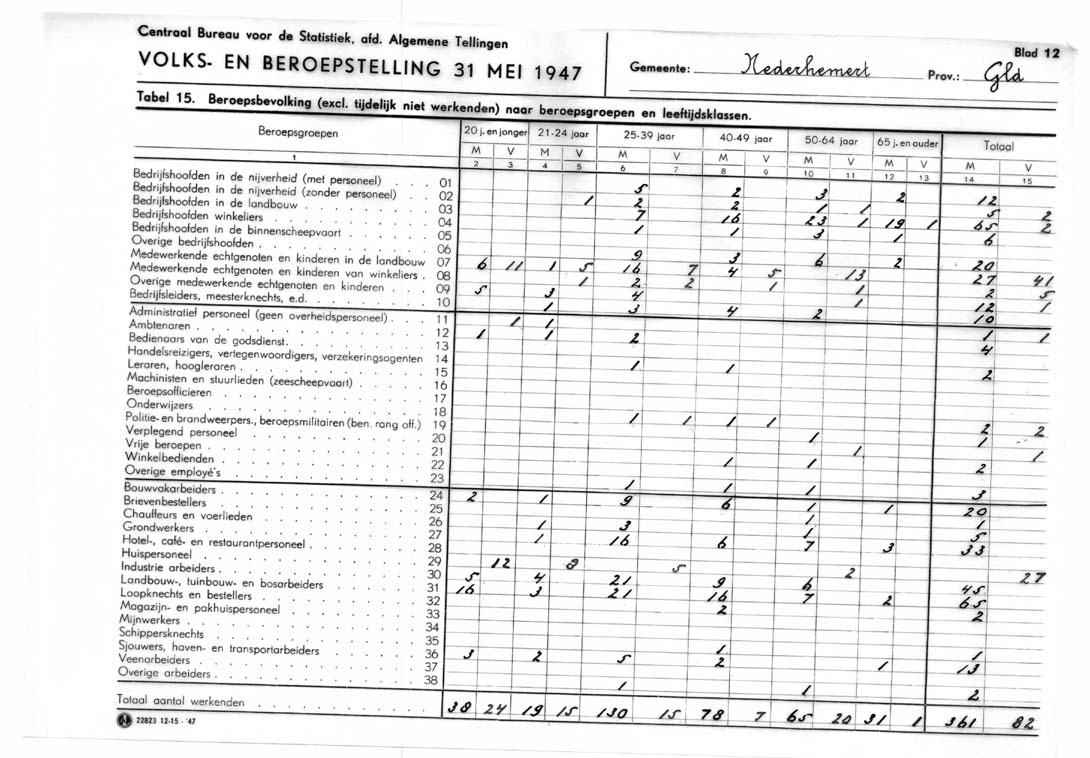 Centraal Bureau voor de Statistiek, afd. Algemene Tellingen
Blad 12
VOLKS- EN BEROEPSTELLING 31 MEI 1947 Gemeente: Nederhemert Prov.: Gld
Tabel 15. Beroepsbevolking (excl. tijdelijk niet werkenden) naar beroepsgroepen en leeftijdsklassen.
Beroepsgroepen 20 j. en jonger 21-24 jaar 25-39 jaar 40-49 jaar 50-64 jaar 65 j. en ouder Totaal
M V M V M V M V M V M V M V
1 2 3 4 5 6 7 8 9 10 11 12 13 14 15
Bedrijfshoofden in de nijverheid (met personeel) . . . 01 5 2 3 2 12
Bedrijfshoofden in de nijverheid (zonder personeel) . . 02 1 2 2 1 1 5 2
Bedrijfshoofden in de landbouw . . . . . . . . . 03 7 16 23 1 19 1 65 2
Bedrijfshoofden winkeliers . . . . . . . . . . . 04 1 1 3 1 6
Bedrijfshoofden in de binnenscheepvaart . . . . . . 05
Overige bedrijfshoofden . . . . . . . . . . . . 06 9 3 6 2 20
Medewerkende echtgenoten en kinderen in de landbouw 07 6 11 1 5 16 7 4 5 13 27 41
Medewerkende echtgenoten en kinderen van winkeliers . 08 1 2 2 1 1 2 5
Overige medewerkende echtgenoten en kinderen . . . . 09 5 3 4 1 12 1
Bedrijfsleiders, meesterknechts, e.d. . . . . . . . . 10 1 3 4 2 10
Administratief personeel (geen overheidspersoneel) . . . 11 1 1 1 1
Ambtenaren . . . . . . . . . . . . . . . . 12 1 1 2 4
Bedienaars van de godsdienst. . . . . . . . . . . 13
Handelsreizigers, vertegenwoordigers, verzekeringsagenten 14 1 1 2
Leraren, hoogleraren . . . . . . . . . . . . . 15
Machinisten en stuurlieden (zeescheepvaart) . . . . . 16
Beroepsofficieren . . . . . . . . . . . . . . 17
Onderwijzers . . . . . . . . . . . . . . . 18 1 1 1 1 2 2
Politie- en brandweerpers., beroepsmilitairen (ben. rang off.) 19 1 1
Verplegend personeel . . . . . . . . . . . . . 20 1 1
Vrije beroepen . . . . . . . . . . . . . . . 21 1 1 2
Winkelbedienden . . . . . . . . . . . . . . 22
Overige employé's . . . . . . . . . . . . . . 23 1 1 1 3
Bouwvakarbeiders . . . . . . . . . . . . . . 24 2 1 9 6 1 1 20
Brievenbestellers . . . . . . . . . . . . . . 25 1 1
Chauffeurs en voerlieden . . . . . . . . . . . 26 1 3 1 5
Grondwerkers . . . . . . . . . . . . . . . 27 1 16 6 7 3 33
Hotel-, café- en restaurantpersoneel . . . . . . . . 28
Huispersoneel . . . . . . . . . . . . . . . 29 12 8 5 2 27
Industrie arbeiders . . . . . . . . . . . . . . 30 5 4 21 9 6 45
Landbouw-, tuinbouw- en bosarbeiders . . . . . . . 31 16 3 21 16 7 2 65
Loopknechts en bestellers . . . . . . . . . . . 32 2 2
Magazijn- en pakhuispersoneel . . . . . . . . . 33
Mijnwerkers . . . . . . . . . . . . . . . . 34
Schippersknechts . . . . . . . . . . . . . . 35 1 1
Sjouwers, haven- en transportarbeiders . . . . . . . 36 3 2 5 2 1 13
Veenarbeiders . . . . . . . . . . . . . . . 37
Overige arbeiders . . . . . . . . . . . . . . 38 1 1 2
Totaal aantal werkenden . . . . . . . . . . . . 38 24 19 15 130 15 78 7 65 20 31 1 361 82
22823 12-15 - '47